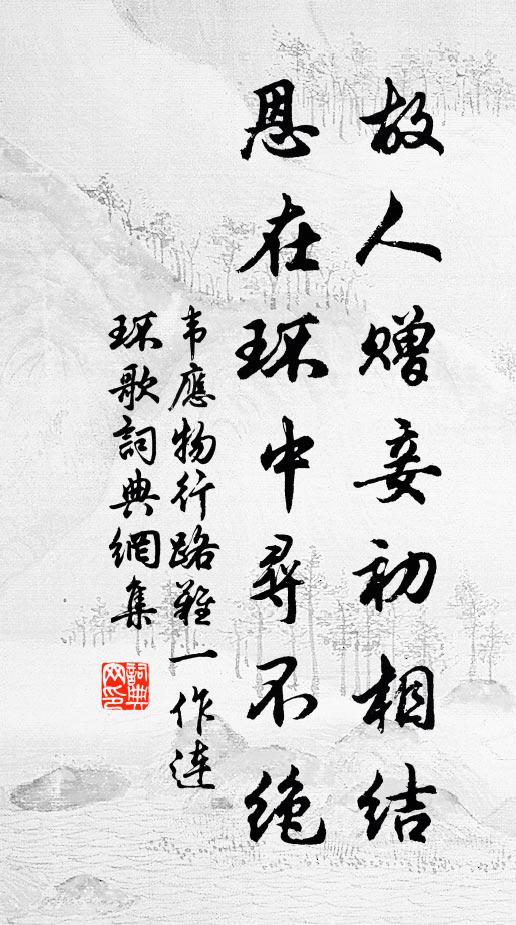 故人赠妾初相结
恩在环中尋不绝
韦應物行路難一作连
环歌詞典網集
詞典
网印